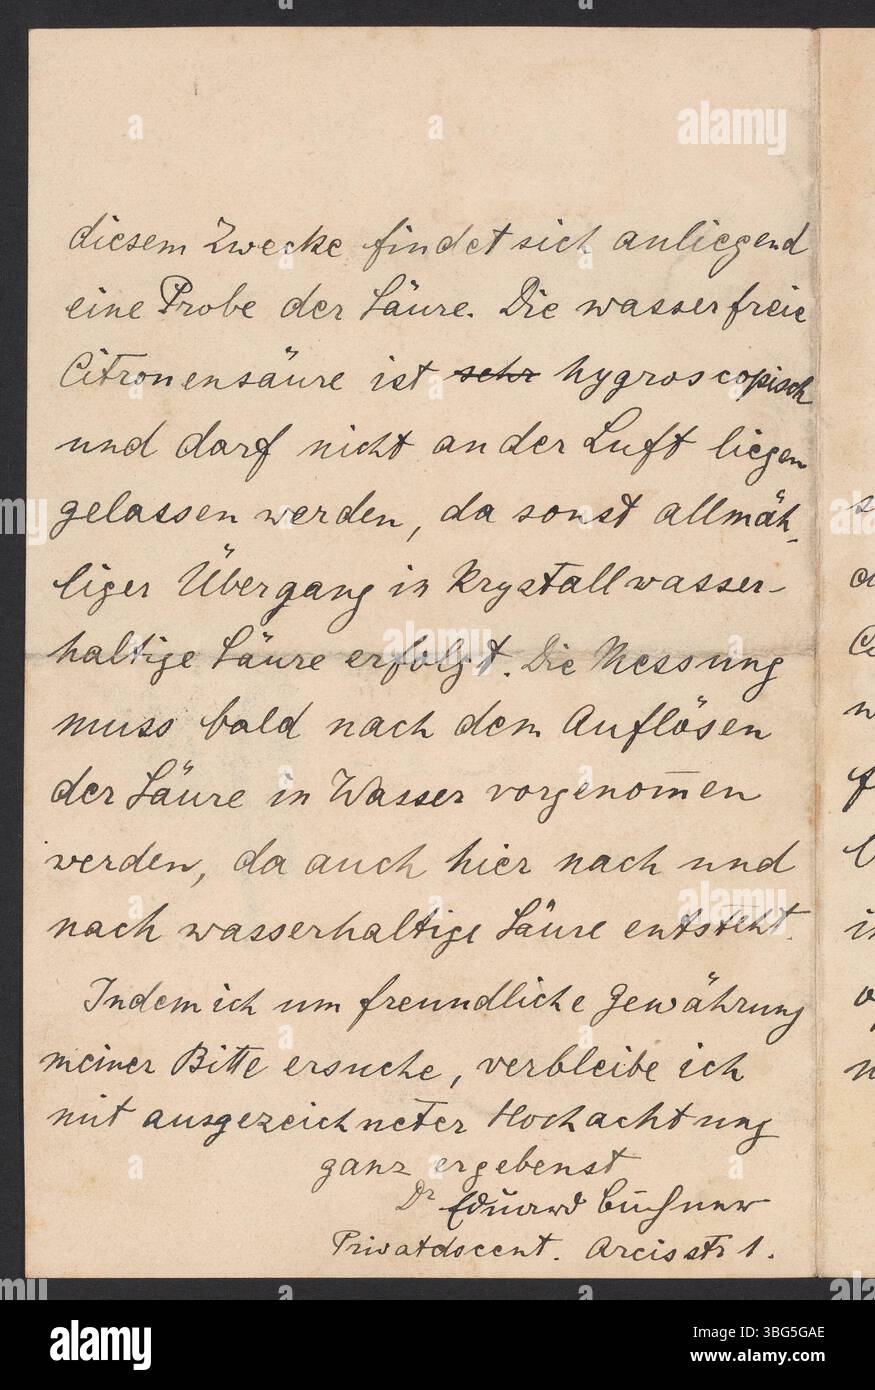 diesem Zwecke findet sich anliegend
eine Probe der Säure. Die wasserfreie
Citronensäure ist sehr hygroscopisch
und darf nicht an der Luft liegen
gelassen werden, da sonst allmäh-
liger Übergang in krystallwasser-
haltige Säure erfolgt. Die Messung
muss bald nach dem Auflösen
der Säure in Wasser vorgenom̅en
werden, da auch hier nach und
nach wasserhaltige Säure entsteht.
Indem ich um freundliche Gewährung
meiner Bitte ersuche, verbleibe ich
mit ausgezeichneter Hochachtung
ganz ergebenst
Dr Eduard Buchner
Privatdocent. Arcisstr 1.
alamy
Image ID: 3BG5GAE
www.alamy.com